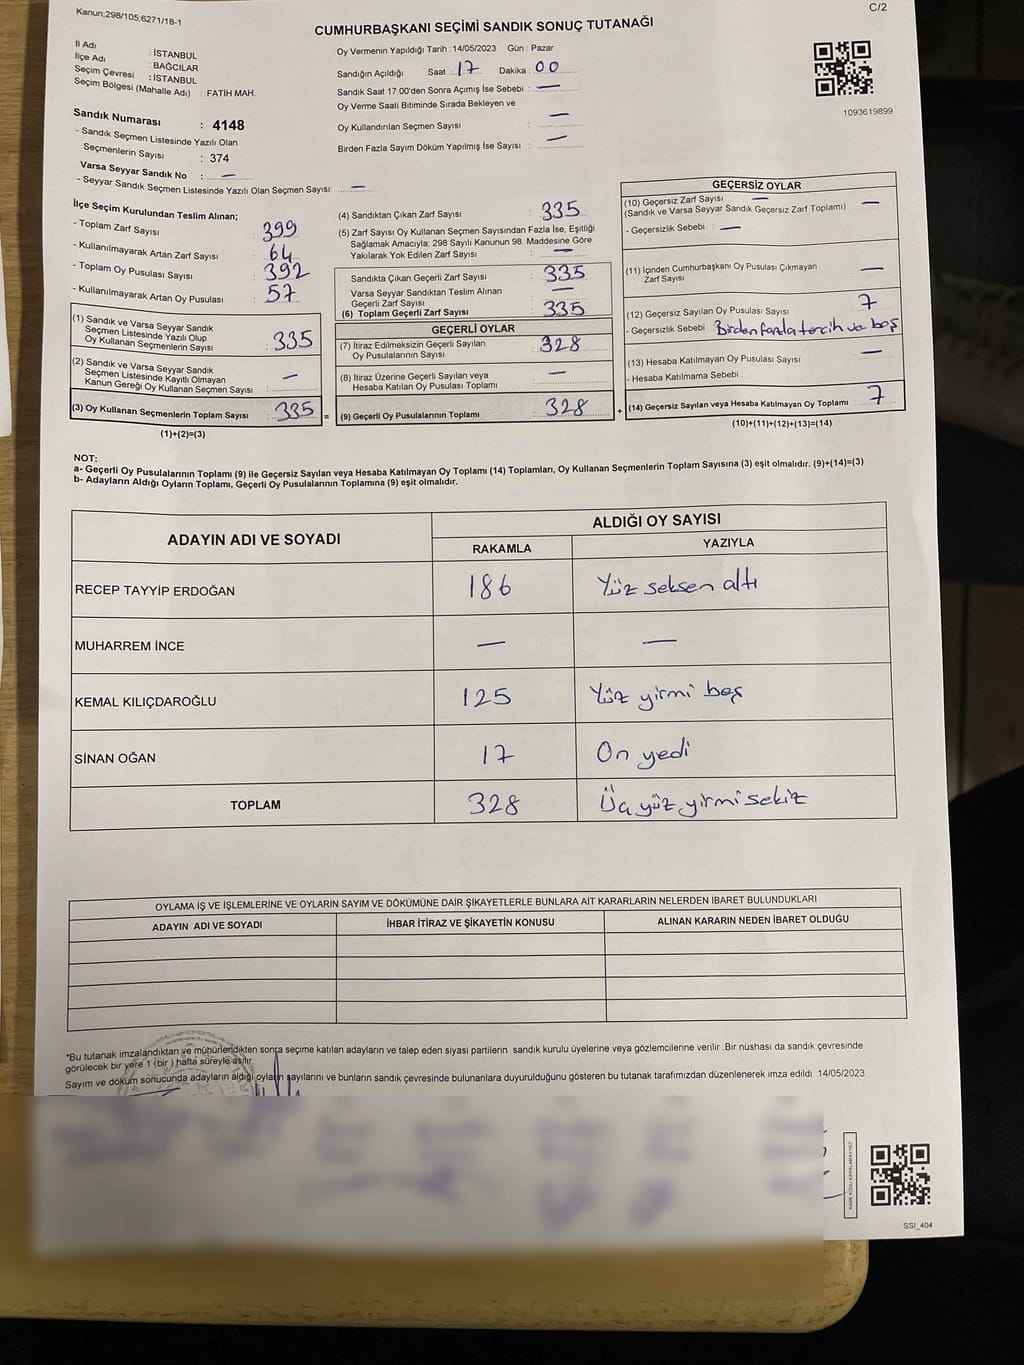 Kanun:298/105;6271/18-1
C/2
CUMHURBAŞKANI SEÇİMİ SANDIK SONUÇ TUTANAĞI
İl Adı : İSTANBUL
İlçe Adı : BAĞCILAR
Seçim Çevresi : İSTANBUL
Seçim Bölgesi (Mahalle Adı) : FATİH MAH.
Oy Vermenin Yapıldığı Tarih : 14/05/2023 Gün : Pazar
Sandığın Açıldığı Saat : 17 Dakika : 00
Sandık Saat 17.00'den Sonra Açımış İse Sebebi : —
Oy Verme Saati Bitiminde Sırada Bekleyen ve
Oy Kullandırılan Seçmen Sayısı : —
Birden Fazla Sayım Döküm Yapılmış İse Sayısı : —
1093619899
Sandık Numarası : 4148
- Sandık Seçmen Listesinde Yazılı Olan
Seçmenlerin Sayısı : 374
Varsa Seyyar Sandık No : —
- Seyyar Sandık Seçmen Listesinde Yazılı Olan Seçmen Sayısı: —
İlçe Seçim Kurulundan Teslim Alınan;
- Toplam Zarf Sayısı 399
- Kullanılmayarak Artan Zarf Sayısı 64
- Toplam Oy Pusulası Sayısı 392
- Kullanılmayarak Artan Oy Pusulası 57
(1) Sandık ve Varsa Seyyar Sandık
Seçmen Listesinde Yazılı Olup
Oy Kullanan Seçmenlerin Sayısı 335
(2) Sandık ve Varsa Seyyar Sandık
Seçmen Listesinde Kayıtlı Olmayan
Kanun Gereği Oy Kullanan Seçmen Sayısı —
(3) Oy Kullanan Seçmenlerin Toplam Sayısı 335 =
(1)+(2)=(3)
(4) Sandıktan Çıkan Zarf Sayısı 335
(5) Zarf Sayısı Oy Kullanan Seçmen Sayısından Fazla İse, Eşitliği
Sağlamak Amacıyla; 298 Sayılı Kanunun 98. Maddesine Göre
Yakılarak Yok Edilen Zarf Sayısı : —
Sandıkta Çıkan Geçerli Zarf Sayısı 335
Varsa Seyyar Sandıktan Teslim Alınan
Geçerli Zarf Sayısı —
(6) Toplam Geçerli Zarf Sayısı 335
GEÇERLİ OYLAR
(7) İtiraz Edilmeksizin Geçerli Sayılan
Oy Pusulalarının Sayısı : 328
(8) İtiraz Üzerine Geçerli Sayılan veya
Hesaba Katılan Oy Pusulası Toplamı —
(9) Geçerli Oy Pusulalarının Toplamı : 328 +
GEÇERSİZ OYLAR
(10) Geçersiz Zarf Sayısı —
(Sandık ve Varsa Seyyar Sandık Geçersiz Zarf Toplamı) —
- Geçersizlik Sebebi : —
(11) İçinden Cumhurbaşkanı Oy Pusulası Çıkmayan
Zarf Sayısı —
(12) Geçersiz Sayılan Oy Pusulası Sayısı 7
- Geçersizlik Sebebi : Birden fazla tercih ve boş
(13) Hesaba Katılmayan Oy Pusulası Sayısı —
- Hesaba Katılmama Sebebi :
(14) Geçersiz Sayılan veya Hesaba Katılmayan Oy Toplamı 7
(10)+(11)+(12)+(13)=(14)
NOT:
a- Geçerli Oy Pusulalarının Toplamı (9) ile Geçersiz Sayılan veya Hesaba Katılmayan Oy Toplamı (14) Toplamları, Oy Kullanan Seçmenlerin Toplam Sayısına (3) eşit olmalıdır. (9)+(14)=(3)
b- Adayların Aldığı Oyların Toplamı, Geçerli Oy Pusulalarının Toplamına (9) eşit olmalıdır.
ADAYIN ADI VE SOYADI
ALDIĞI OY SAYISI
RAKAMLA YAZIYLA
RECEP TAYYİP ERDOĞAN 186 Yüz seksen altı
MUHARREM İNCE — —
KEMAL KILIÇDAROĞLU 125 Yüz yirmi beş
SİNAN OĞAN 17 On yedi
TOPLAM 328 Üç yüz yirmi sekiz
OYLAMA İŞ VE İŞLEMLERİNE VE OYLARIN SAYIM VE DÖKÜMÜNE DAİR ŞİKAYETLERLE BUNLARA AİT KARARLARIN NELERDEN İBARET BULUNDUKLARI
ADAYIN ADI VE SOYADI İHBAR İTİRAZ VE ŞİKAYETİN KONUSU ALINAN KARARIN NEDEN İBARET OLDUĞU
*Bu tutanak imzalandıktan ve mühürlendikten sonra seçime katılan adayların ve talep eden siyasi partilerin sandık kurulu üyelerine veya gözlemcilerine verilir. Bir nüshası da sandık çevresinde
görülecek bir yere 1 (bir ) hafta süreyle asılır.
Sayım ve döküm sonucunda adayların aldığı oyların sayılarını ve bunların sandık çevresinde bulunanlara duyurulduğunu gösteren bu tutanak tarafımızdan düzenlenerek imza edildi. 14/05/2023
SSI_404